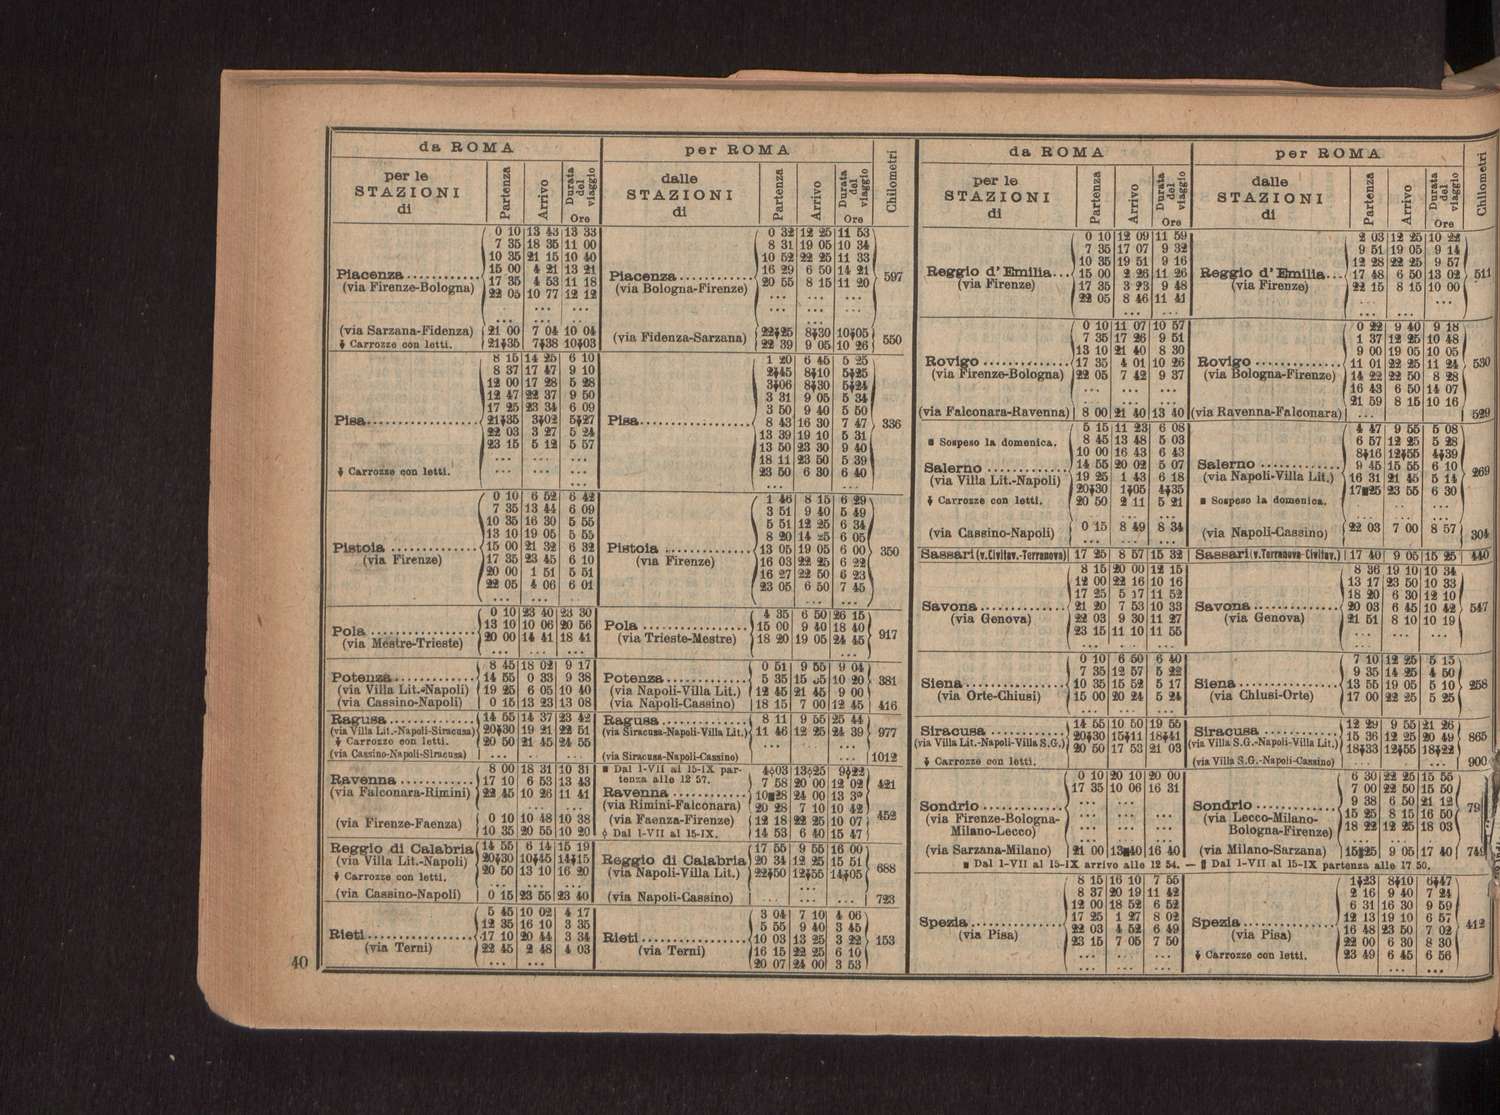 da ROMA
per le STAZIONI di
Partenza
Arrivo
Durata del viaggio Ore
per ROMA
dalle STAZIONI di
Partenza
Arrivo
Durata del viaggio Ore
Chilometri
Piacenza (via Firenze-Bologna)
0 10 13 43 13 33
7 35 18 35 11 00
10 35 21 15 10 40
15 00 4 21 13 21
17 35 4 53 11 18
22 05 10 77 12 12
... ...
... ...
(via Sarzana-Fidenza) 21 00 7 04 10 04
⸸ Carrozze con letti. 21⸸35 7⸸38 10⸸03
Piacenza (via Bologna-Firenze)
0 32 12 25 11 53
8 31 19 05 10 34
10 52 22 25 11 33
16 29 6 50 14 21
20 55 8 15 11 20
... ... ...
... ... ...
597
(via Fidenza-Sarzana)
22⸸25 8⸸30 10⸸05
22 39 9 05 10 26
550
Pisa
8 15 14 25 6 10
8 37 17 47 9 10
12 00 17 28 5 28
12 47 22 37 9 50
17 25 23 34 6 09
21⸸35 3⸸02 5⸸27
22 03 3 27 5 24
23 15 5 12 5 57
... ... ...
⸸ Carrozze con letti. ... ... ...
Pisa
1 20 6 45 5 25
2⸸45 8⸸10 5⸸25
3⸸06 8⸸30 5⸸24
3 31 9 05 5 34
3 50 9 40 5 50
8 43 16 30 7 47
13 39 19 10 5 31
13 50 23 30 9 40
18 11 23 50 5 39
23 50 6 30 6 40
336
Pistoia (via Firenze)
0 10 6 52 6 42
7 35 13 44 6 09
10 35 16 30 5 55
13 10 19 05 5 55
15 00 21 32 6 32
17 35 23 45 6 10
20 00 1 51 5 51
22 05 4 06 6 01
... ... ...
Pistoia (via Firenze)
1 46 8 15 6 29
3 51 9 40 5 49
5 51 12 25 6 34
8 20 14 25 6 05
13 05 19 05 6 00
16 03 22 25 6 22
16 27 22 50 6 23
23 05 6 50 7 45
350
Pola (via Mestre-Trieste)
0 10 23 40 23 30
13 10 10 06 20 56
20 00 14 41 18 41
... ... ...
Pola (via Trieste-Mestre)
4 35 6 50 26 15
15 00 9 40 18 40
18 20 19 05 24 45
917
Potenza (via Villa Lit.-Napoli)
8 45 18 02 9 17
14 55 0 33 9 38
19 25 6 05 10 40
(via Cassino-Napoli) 0 15 13 23 13 08
Potenza (via Napoli-Villa Lit.)
0 51 9 55 9 04
5 35 15 10 20
12 45 21 45 9 00
381
(via Napoli-Cassino) 18 15 7 00 12 45 416
Ragusa (via Villa Lit.-Napoli-Siracusa)
14 55 14 37 23 42
20⸸30 19 21 22 51
⸸ Carrozze con letti. 20 50 21 45 24 55
(via Cassino-Napoli-Siracusa) ... ... ...
Ragusa (via Siracusa-Napoli-Villa Lit.)
8 11 9 55 25 44
11 46 12 25 24 39
... ... ...
977
(via Siracusa-Napoli-Cassino) ... ... ... 1012
Ravenna (via Falconara-Rimini)
8 00 18 31 10 31
17 10 6 53 13 43
22 45 10 26 11 41
... ... ...
(via Firenze-Faenza)
0 10 10 48 10 38
10 35 20 55 10 20
■ Dal 1-VII al 15-IX partenza alle 12 57.
Ravenna (via Rimini-Falconara)
4 03 13 25 9 22
7 58 20 00 12 02
10■28 24 00 13
20 28 7 10 10 42
421
(via Faenza-Firenze)
12 18 22 25 10 07
14 53 6 40 15 47
452
Dal 1-VII al 15-IX.
Reggio di Calabria (via Villa Lit.-Napoli)
14 55 6 14 15 19
20⸸30 10⸸45 14⸸15
⸸ Carrozze con letti. 20 50 13 10 16 20
... ... ...
(via Cassino-Napoli) 0 15 23 55 23 40
Reggio di Calabria (via Napoli-Villa Lit.)
17 55 9 55 16 00
20 34 12 25 15 51
22⸸50 12⸸55 14⸸05
688
(via Napoli-Cassino) ... ... ... 723
Rieti (via Terni)
5 45 10 02 4 17
12 35 16 10 3 35
17 10 20 44 3 34
22 45 2 48 4 03
... ...
Rieti (via Terni)
3 04 7 10 4 06
5 55 9 40 3 45
10 03 13 25 3 22
16 15 22 25 6 10
20 07 24 00 3 53
153
40
da ROMA
per le STAZIONI di
Partenza
Arrivo
Durata del viaggio Ore
per ROMA
dalle STAZIONI di
Partenza
Arrivo
Durata del viaggio Ore
Chilometri
Reggio d'Emilia (via Firenze)
0 10 12 09 11 59
7 35 17 07 9 32
10 35 19 51 9 16
15 00 2 26 11 26
17 35 3 23 9 48
22 05 8 46 11 41
Reggio d'Emilia (via Firenze)
2 03 12 25 10 22
9 51 19 05 9 14
12 28 22 25 9 57
17 48 6 50 13 02
22 15 8 15 10 00
... ...
511
Rovigo (via Firenze-Bologna)
0 10 11 07 10 57
7 35 17 26 9 51
13 10 21 40 8 30
17 35 4 01 10 26
22 05 7 42 9 37
... ... ...
... ... ...
(via Falconara-Ravenna) 8 00 21 40 13 40
Rovigo (via Bologna-Firenze)
0 22 9 40 9 18
1 37 12 25 10 48
9 00 19 05 10 05
11 01 22 25 11 24
14 22 22 50 8 28
16 43 6 50 14 07
21 59 8 15 10 16
530
(via Ravenna-Falconara) ... 529
■ Sospeso la domenica.
Salerno (via Villa Lit.-Napoli)
5 15 11 23 6 08
8 45 13 48 5 03
10 00 16 43 6 43
14 55 20 02 5 07
19 25 1 43 6 18
20⸸30 1⸸05 4⸸35
20 50 2 11 5 21
⸸ Carrozze con letti.
(via Cassino-Napoli) 0 15 8 49 8 34
Salerno (via Napoli-Villa Lit.)
4 47 9 55 5 08
6 57 12 25 5 28
8⸸16 12⸸55 4⸸39
9 45 15 55 6 10
16 31 21 45 5 14
17■25 23 55 6 30
269
■ Sospeso la domenica.
(via Napoli-Cassino) 22 03 7 00 8 57 304
Sassari (v. Civitav.-Terranova) 17 25 8 57 15 32
Sassari (v. Terranova-Civitav.) 17 40 9 05 15 25 440
Savona (via Genova)
8 15 20 00 12 15
12 00 22 16 10 16
17 25 5 17 11 52
21 20 7 53 10 33
22 03 9 30 11 27
23 15 11 10 11 55
... ... ...
Savona (via Genova)
8 36 19 10 10 34
13 17 23 50 10 33
18 20 6 30 12 10
20 03 6 45 10 42
21 51 8 10 10 19
... ... ...
547
Siena (via Orte-Chiusi)
0 10 6 50 6 40
7 35 12 57 5 22
10 35 15 52 5 17
15 00 20 24 5 24
... ... ...
Siena (via Chiusi-Orte)
7 10 12 25 5 15
9 35 14 25 4 50
13 55 19 05 5 10
17 00 22 25 5 25
258
Siracusa (via Villa Lit.-Napoli-Villa S.G.)
14 55 10 50 19 55
20⸸30 15⸸11 18⸸41
20 50 17 53 21 03
⸸ Carrozze con letti. ... ... ...
Siracusa (via Villa S.G.-Napoli-Villa Lit.)
12 29 9 55 21 26
15 36 12 25 20 49
18⸸33 12⸸55 18⸸22
865
(via Villa S.G.-Napoli-Cassino) ... ... ... 900
Sondrio (via Firenze-Bologna-Milano-Lecco)
0 10 20 10 20 00
17 35 10 06 16 31
... ... ...
... ... ...
(via Sarzana-Milano) 21 00 13■40 16 40
Sondrio (via Lecco-Milano-Bologna-Firenze)
6 30 22 25 15 55
7 00 22 50 15 50
9 38 6 50 21 12
15 25 8 15 16 50
18 22 12 25 18 03
(via Milano-Sarzana) 15 25 9 05 17 40
■ Dal 1-VII al 15-IX arrivo alle 12 54. — Dal 1-VII al 15-IX partenza alle 17 50.
Spezia (via Pisa)
8 15 16 10 7 55
8 37 20 19 11 42
12 00 18 52 6 52
17 25 1 27 8 02
22 03 4 52 6 49
23 15 7 05 7 50
... ... ...
Spezia (via Pisa)
1⸸23 8⸸10 6⸸47
2 16 9 40 7 24
6 31 16 30 9 59
12 13 19 10 6 57
16 48 23 50 7 02
22 00 6 30 8 30
23 49 6 45 6 56
412
⸸ Carrozze con letti.